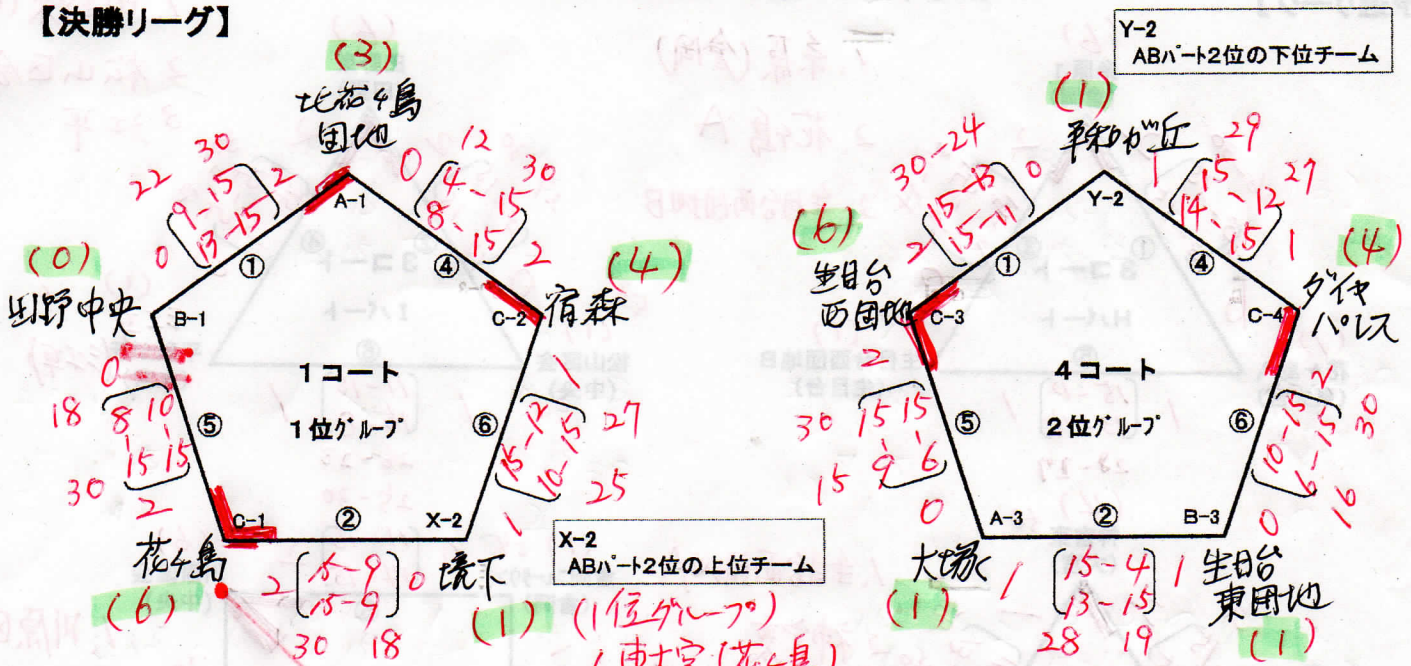 【決勝リーグ】
Y-2
ABパート2位の下位チーム
(3)
北花ヶ島
団地
A-1
30
22
9-15
13-15
2
0
①
12
0
4-15
8-15
30
2
④
(0)
B-1
(4)
宿森
C-2
1コート
1位グループ
0
18
8 10
15 15
30
2
⑤
⑥
1
15-12
10-15
27
25
1
C-1
②
X-2
花ヶ島
(6)
2
15-9
15-9
0
30 18
境下
(1)
X-2
ABパート2位の上位チーム
(1位グループ)
(1)
平和が丘
Y-2
30-24
15-13
15-11
0
2
①
1
29
15
14-12
-15
27
1
④
(6)
生目台
西団地
C-3
(4)
ダイヤ
パレス
C-4
4コート
2位グループ
2
30
15 15
9 6
15
0
⑤
⑥
2
10-15
6-15
30
16
0
A-3
②
B-3
大塚
(1)
1
15-4
13-15
1
28 19
生目台
東団地
(1)